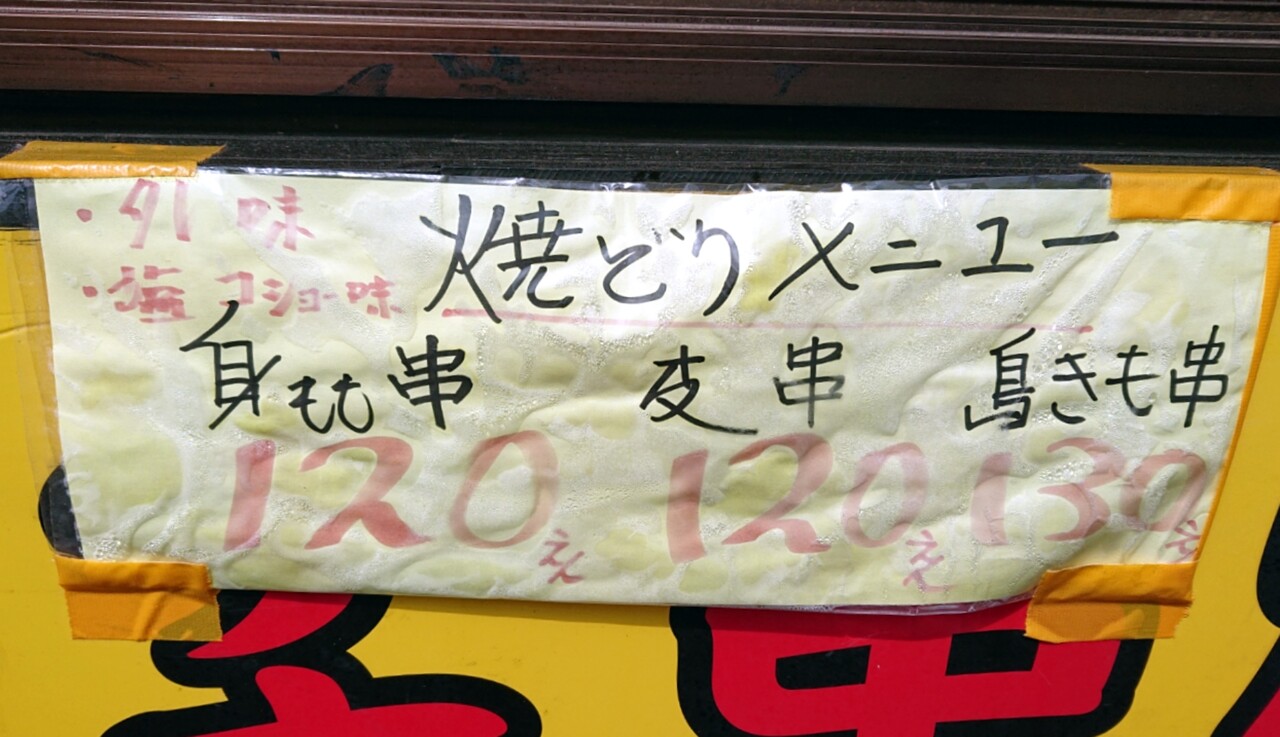 ・タレ味
・塩コショー味
焼どりメニュー
身もも串 皮串 鳥きも串
120えん 120えん 130えん